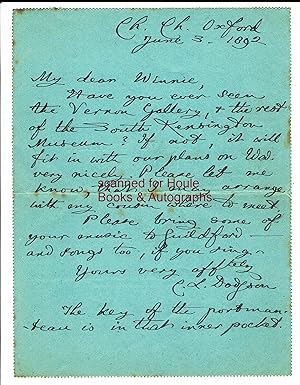 Ch. Ch. Oxford
June 3. 1892
My dear Winnie,
Have you ever seen
the Vernon Gallery, & the rest
of the South Kensington
Museum? If not, it will
fit in with our plans on Wed.
very nicely. Please let me
know, that I may arrange
with my cousin where to meet
scanned for Houle
Books & Autographs
Please bring some of
your music to Guildford
and songs too, if you sing.
Yours very afftely
C. L. Dodgson
The key of the portman-
teau is in that inner pocket.